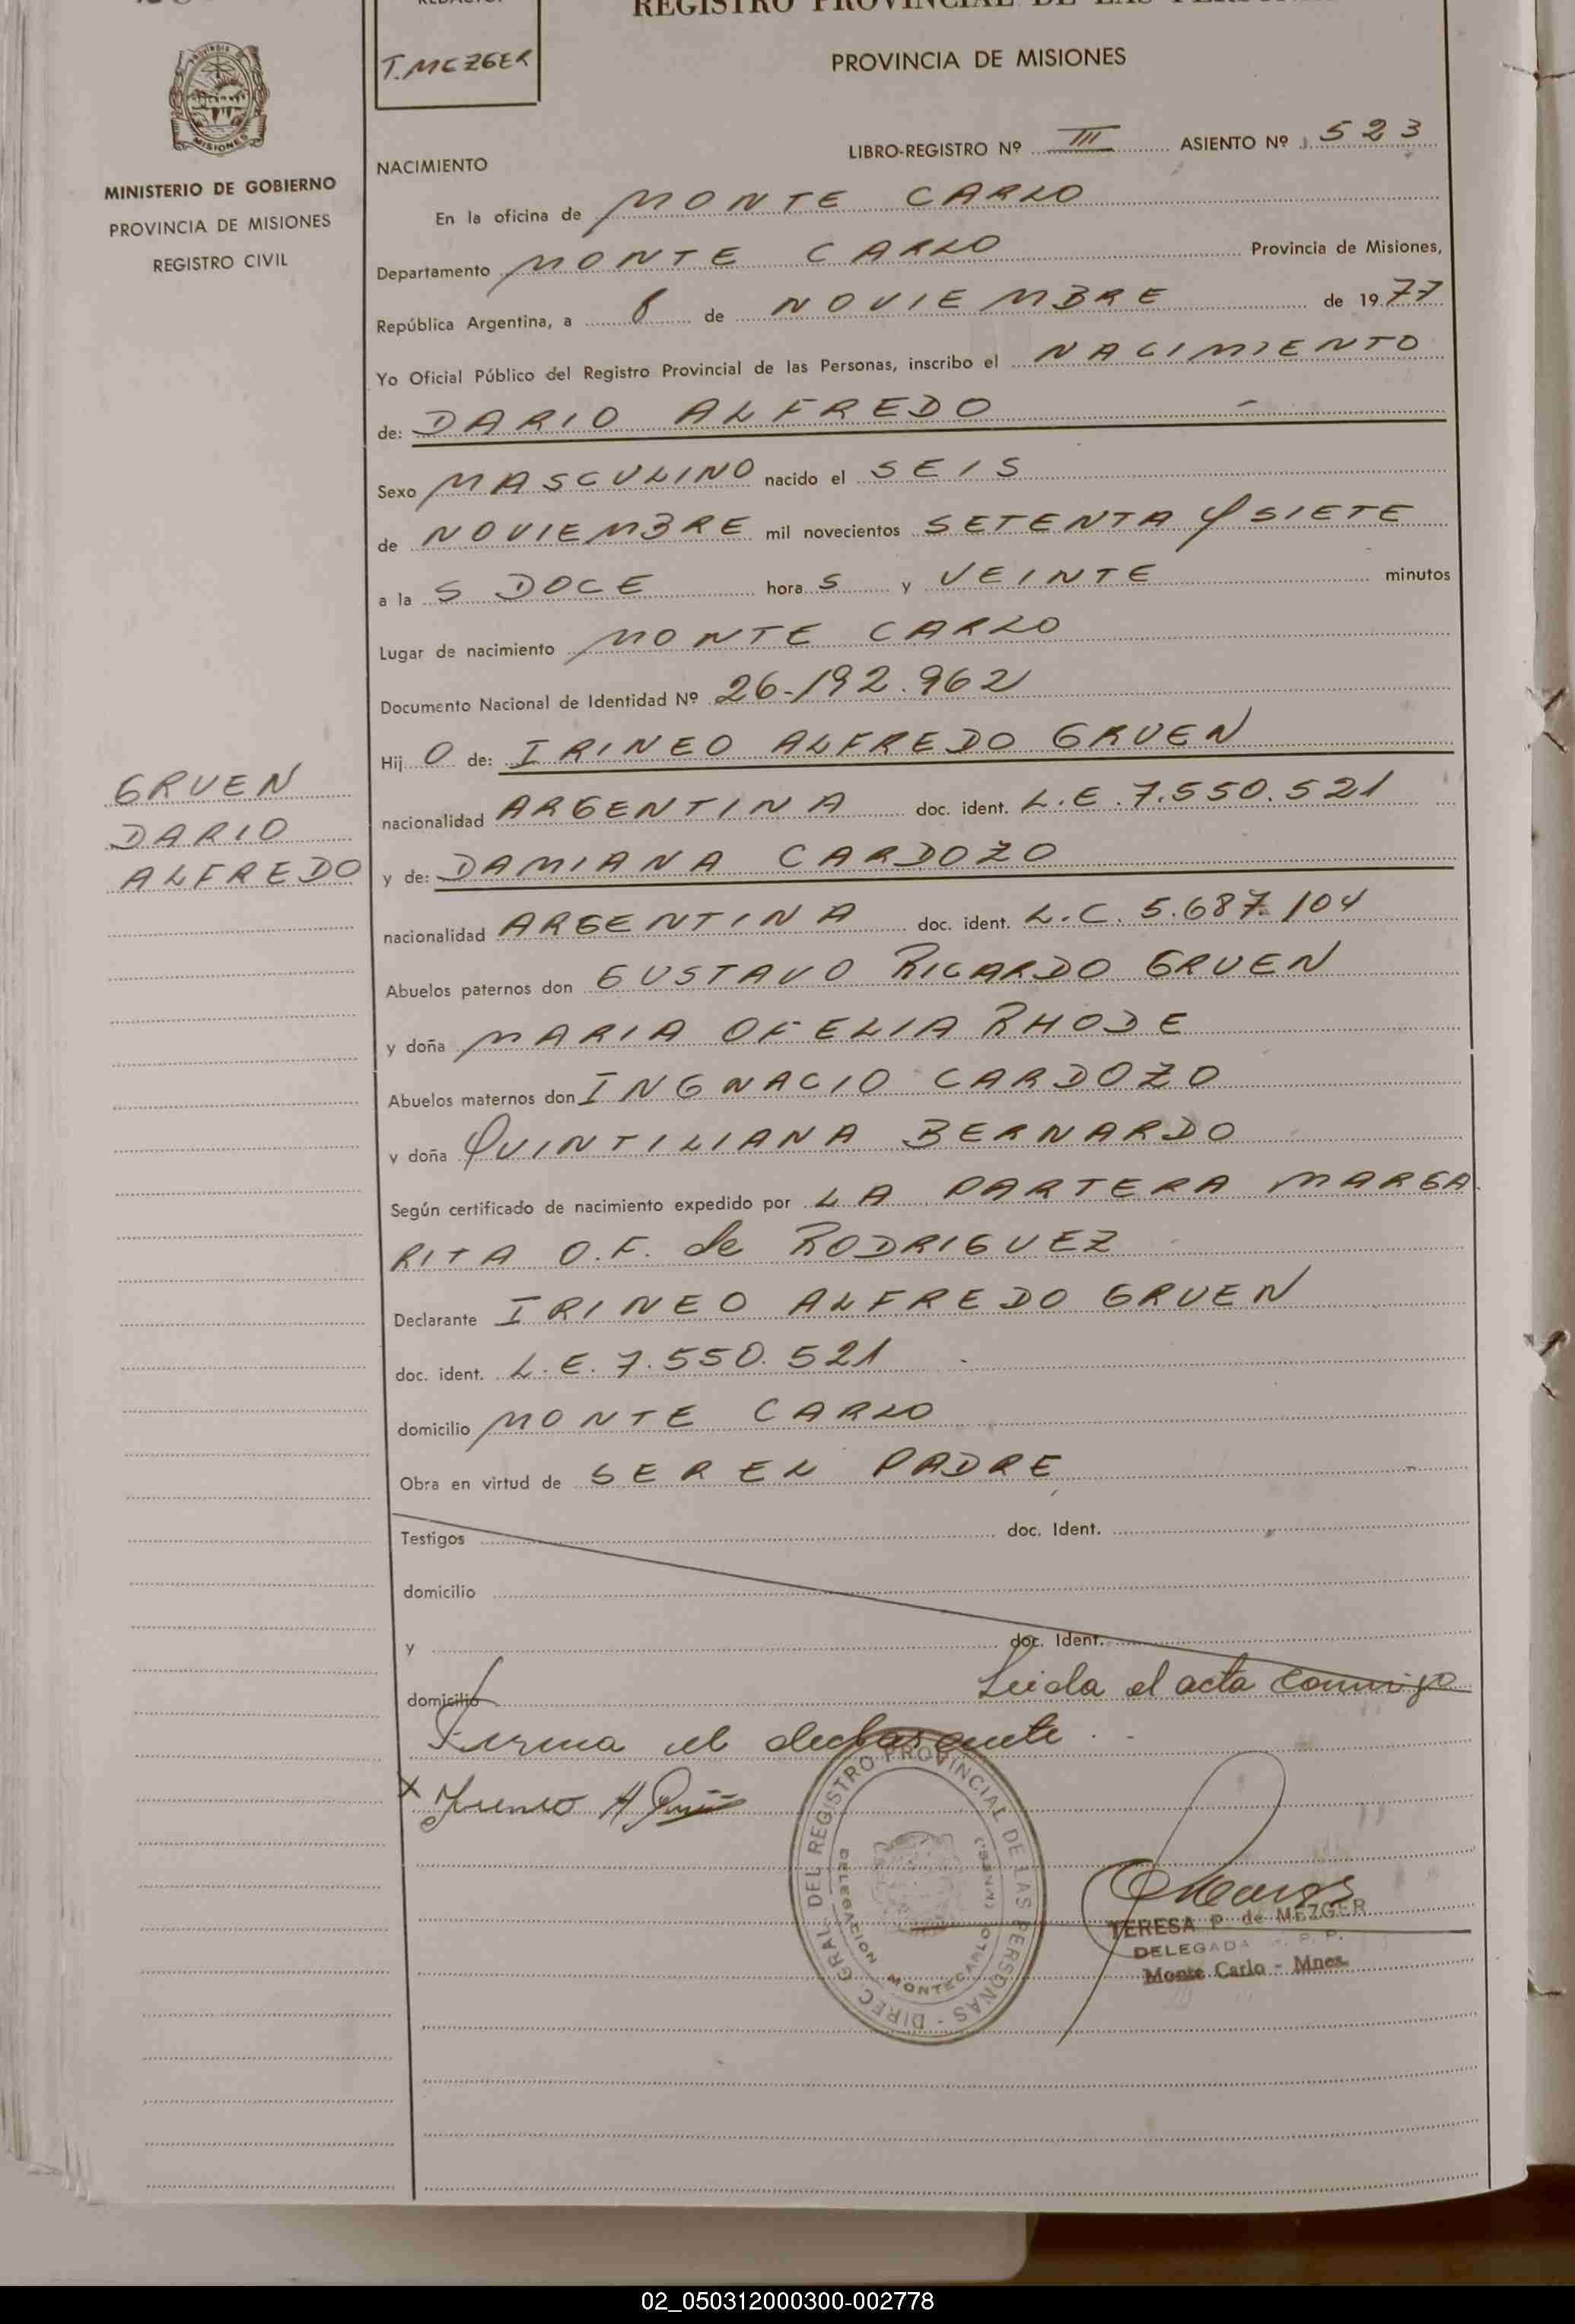 T. MEZGER
PROVINCIA DE MISIONES
MINISTERIO DE GOBIERNO
PROVINCIA DE MISIONES
REGISTRO CIVIL
LIBRO-REGISTRO Nº III ASIENTO Nº 523
NACIMIENTO
En la oficina de MONTE CARLO
Departamento MONTE CARLO Provincia de Misiones,
República Argentina, a 8 de NOVIEMBRE de 1977
Yo Oficial Público del Registro Provincial de las Personas, inscribo el NACIMIENTO
de: DARIO ALFREDO
Sexo MASCULINO nacido el SEIS
de NOVIEMBRE mil novecientos SETENTA Y SIETE
a la S DOCE hora S y VEINTE minutos
Lugar de nacimiento MONTE CARLO
Documento Nacional de Identidad Nº 26-192.962
Hij O de: IRINEO ALFREDO GRUEN
nacionalidad ARGENTINA doc. ident. L.E. 7.550.521
GRUEN
DARIO
ALFREDO
y de: DAMIANA CARDOZO
nacionalidad ARGENTINA doc. ident. L.C. 5.687.104
Abuelos paternos don GUSTAVO RICARDO GRUEN
y doña MARIA OFELIA RHODE
Abuelos maternos don INGNACIO CARDOZO
y doña QUINTILIANA BERNARDO
Según certificado de nacimiento expedido por LA PARTERA MARGA
RITA O.F. de RODRIGUEZ
Declarante IRINEO ALFREDO GRUEN
doc. ident. L.E. 7.550.521
domicilio MONTE CARLO
Obra en virtud de SER EL PADRE
Testigos doc. Ident.
domicilio
y doc. Ident.
domicilio Leida el acta conmigo
Firma el declarante.
DIREC. GRAL. DEL REGISTRO PROVINCIAL DE LAS PERSONAS
DELEGACION MONTECARLO (MNES.)
TERESA P. de MEZGER
DELEGADA
Monte Carlo - Mnes.
02_050312000300-002778